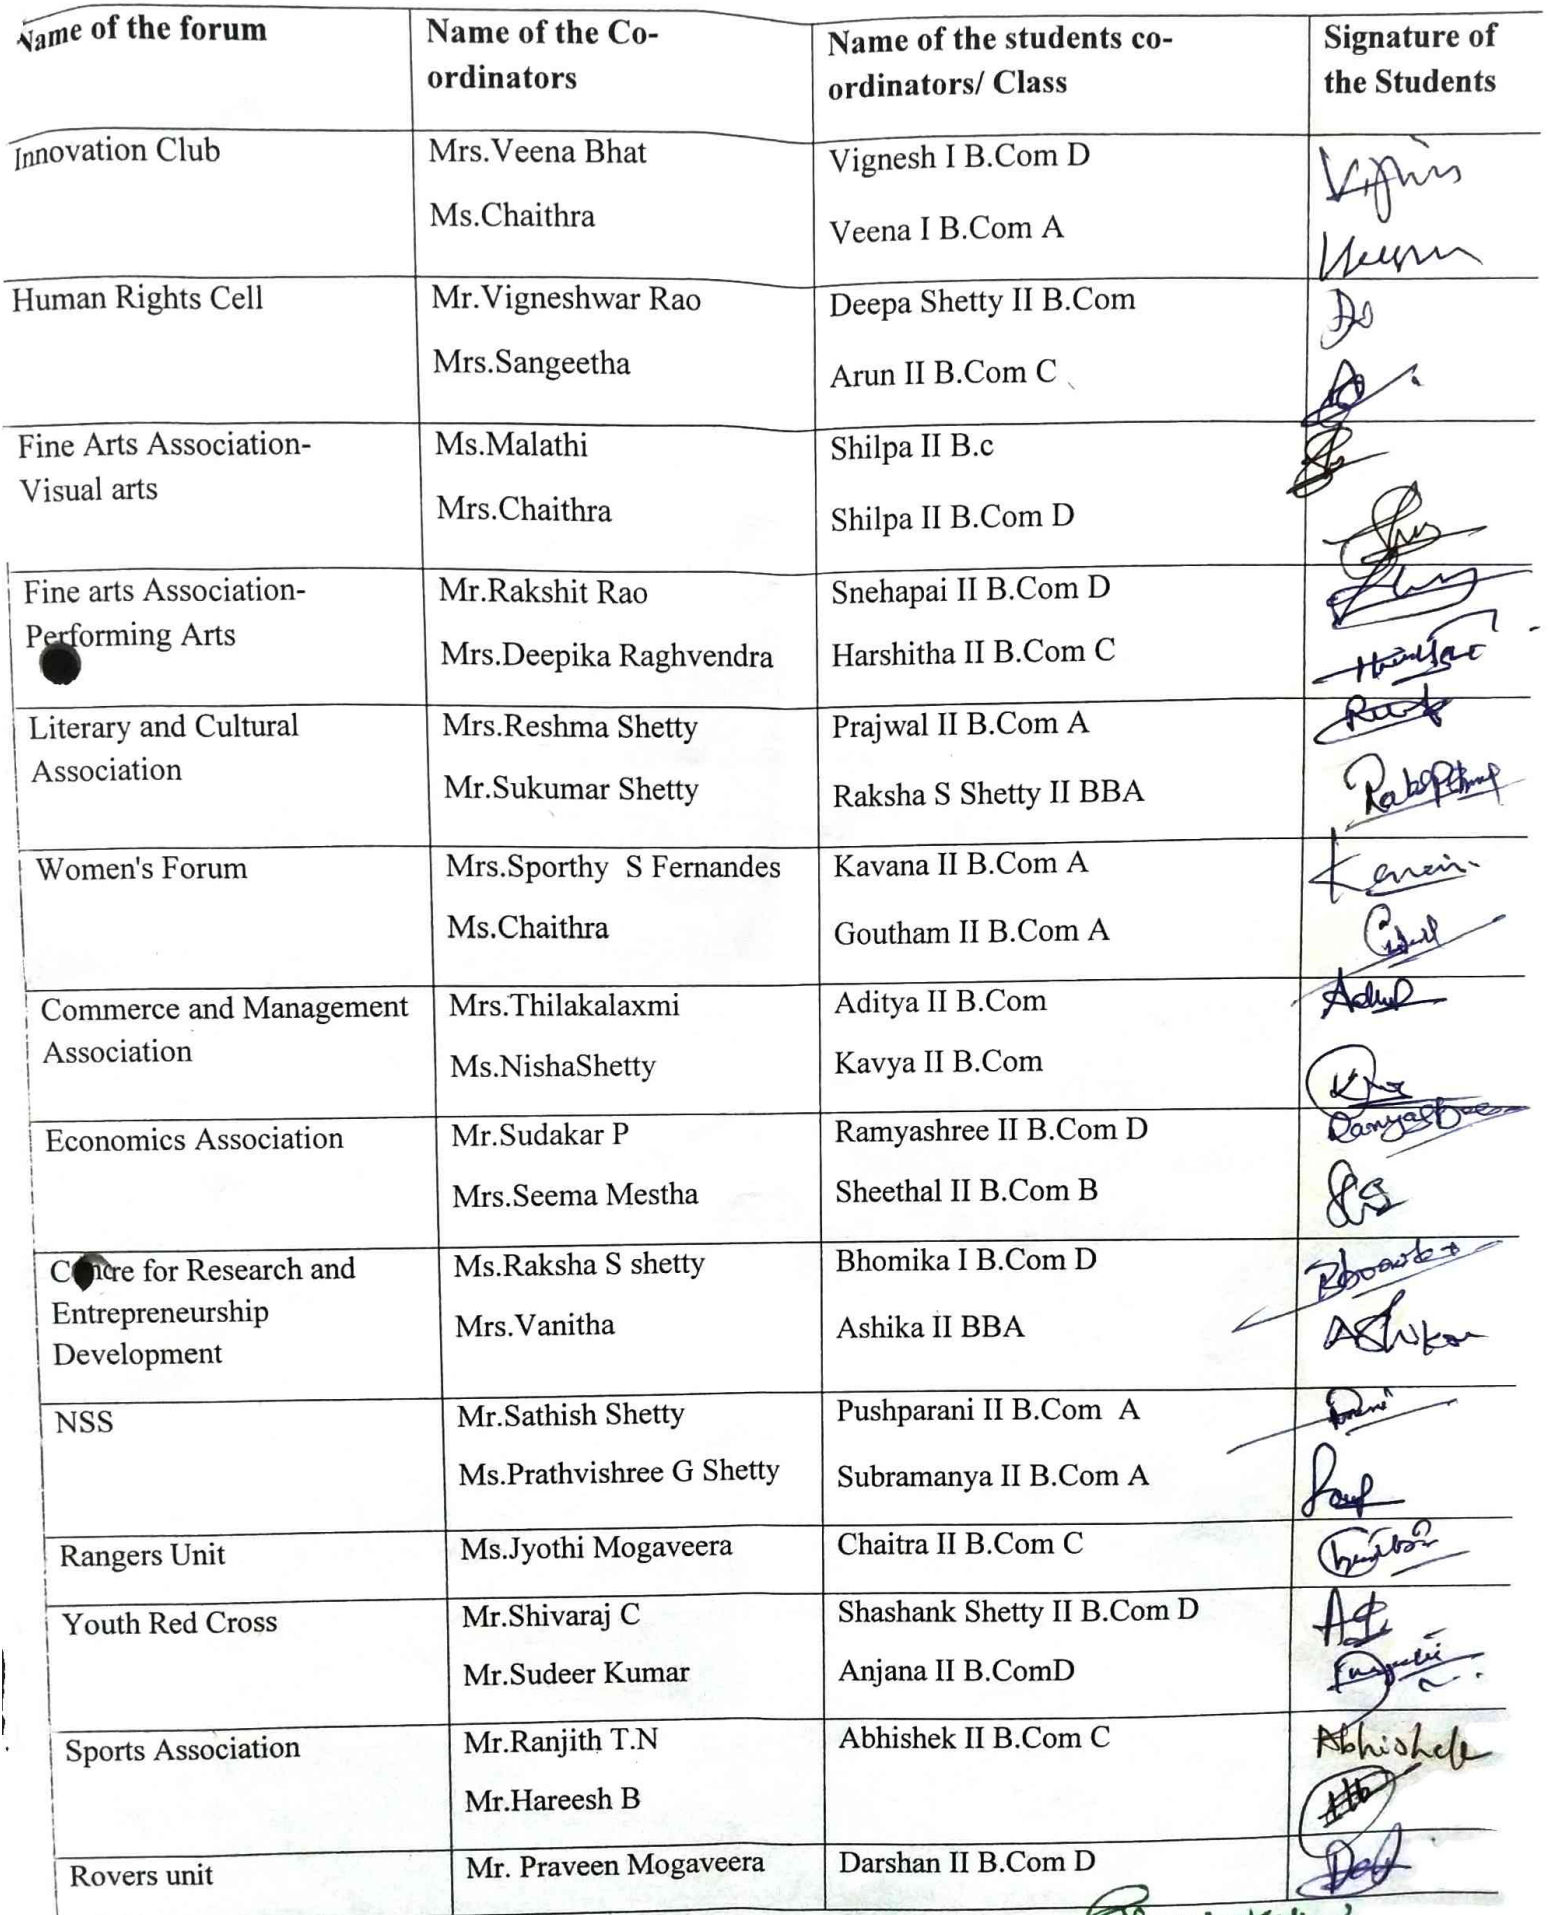 Name of the forum
Name of the Co-
ordinators
Name of the students co-
ordinators/ Class
Signature of
the Students
Innovation Club
Mrs.Veena Bhat
Ms.Chaithra
Vignesh I B.Com D
Veena I B.Com A
Human Rights Cell
Mr.Vigneshwar Rao
Mrs.Sangeetha
Deepa Shetty II B.Com
Arun II B.Com C
Fine Arts Association-
Visual arts
Ms.Malathi
Mrs.Chaithra
Shilpa II B.c
Shilpa II B.Com D
Fine arts Association-
Performing Arts
Mr.Rakshit Rao
Mrs.Deepika Raghvendra
Snehapai II B.Com D
Harshitha II B.Com C
Literary and Cultural
Association
Mrs.Reshma Shetty
Mr.Sukumar Shetty
Prajwal II B.Com A
Raksha S Shetty II BBA
Women's Forum
Mrs.Sporthy S Fernandes
Ms.Chaithra
Kavana II B.Com A
Goutham II B.Com A
Commerce and Management
Association
Mrs.Thilakalaxmi
Ms.NishaShetty
Aditya II B.Com
Kavya II B.Com
Economics Association
Mr.Sudakar P
Mrs.Seema Mestha
Ramyashree II B.Com D
Sheethal II B.Com B
Centre for Research and
Entrepreneurship
Development
Ms.Raksha S shetty
Mrs.Vanitha
Bhomika I B.Com D
Ashika II BBA
Ashika
NSS
Mr.Sathish Shetty
Ms.Prathvishree G Shetty
Pushparani II B.Com A
Subramanya II B.Com A
Rangers Unit
Ms.Jyothi Mogaveera
Chaitra II B.Com C
Youth Red Cross
Mr.Shivaraj C
Mr.Sudeer Kumar
Shashank Shetty II B.Com D
Anjana II B.ComD
Sports Association
Mr.Ranjith T.N
Mr.Hareesh B
Abhishek II B.Com C
Abhishek
Rovers unit
Mr. Praveen Mogaveera
Darshan II B.Com D